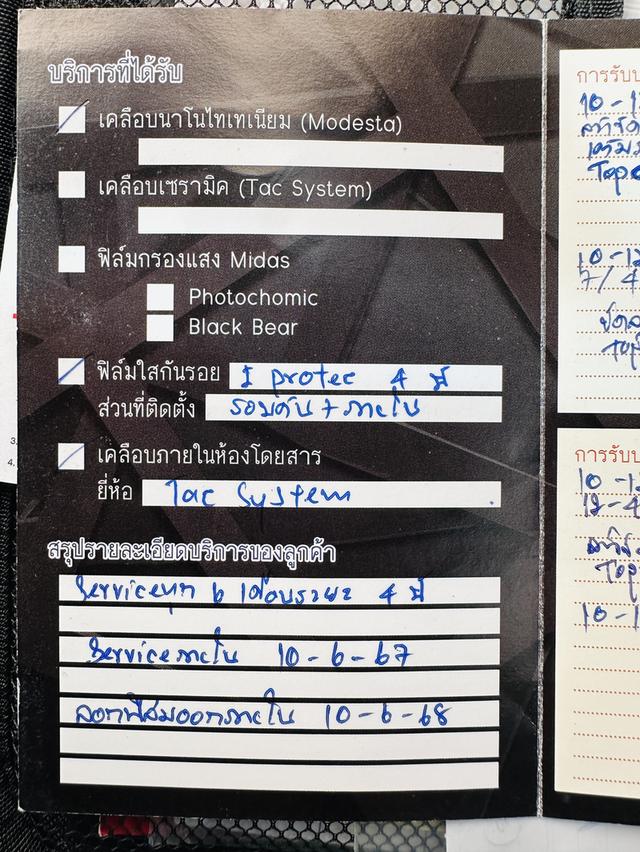 บริการที่ได้รับ
เคลือบนาโนไทเทเนียม (Modesta)
เคลือบเซรามิค (Tac System)
ฟิล์มกรองแสง Midas
Photochomic
Black Bear
ฟิล์มใสกันรอย I protec 4 ปี
ส่วนที่ติดตั้ง รอบคัน + ภายใน
เคลือบภายในห้องโดยสาร
ยี่ห้อ Tac System
สรุปรายละเอียดบริการของลูกค้า
Serviceทุก 6 เดือนระยะ 4 ปี
Serviceภายใน 10-6-67
ลอกฟิล์มออกภายใน 10-6-68
การรับบ
10-1
Top
10-12
7/4
การรับบ
10-12
12-4
Top
10-1